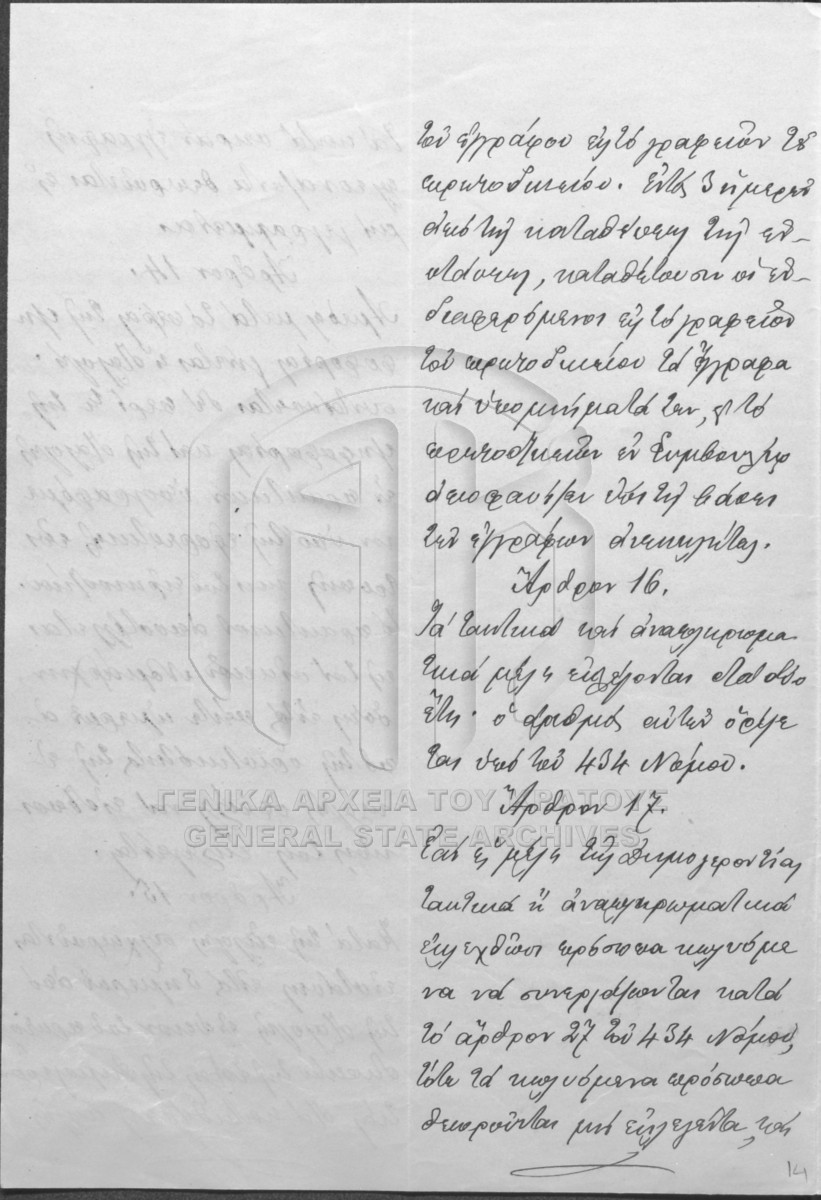 τοῦ ἐγγράφου εἰς τὸ γραφεῖον τοῦ
πρωτοδικείου. Ἐντὸς 3 ἡμερῶν
ἀπὸ τῆς καταθέσεως τῆς ἐν-
στάσεως, καταθέτουσιν οἱ ἐν-
διαφερόμενοι εἰς τὸ γραφεῖον
τοῦ πρωτοδικείου τὰ ἔγγραφα
καὶ ὑπομνήματά των, καὶ τὸ
πρωτοδικεῖον ἐν Συμβουλίῳ
ἀποφαίνεται ἐπὶ τῇ βάσει
τῶν ἐγγράφων ἀνεκκλήτως.
Ἄρθρον 16.
Τὰ τακτικὰ καὶ ἀναπληρωμα
τικὰ μέλη ἐκλέγονται διὰ δύο
ἔτη· ὁ ἀριθμὸς αὐτῶν ὁρίζε
ται ὑπὸ τοῦ 434 Νόμου.
Ἄρθρον 17.
Ἐὰν εἰς μέλη τῆς δημογεροντίας
τακτικὰ ἢ ἀναπληρωματικὰ
ἐκλεχθῶσι πρόσωπα κωλυόμε
να νὰ συνεργάζωνται κατὰ
τὸ ἄρθρον 27 τοῦ 434 Νόμου,
τότε τὰ κωλυόμενα πρόσωπα
θεωροῦνται μὴ ἐκλεγέντα, καὶ
14
ΓΕΝΙΚΑ ΑΡΧΕΙΑ ΤΟΥ ΚΡΑΤΟΥΣ
GENERAL STATE ARCHIVES